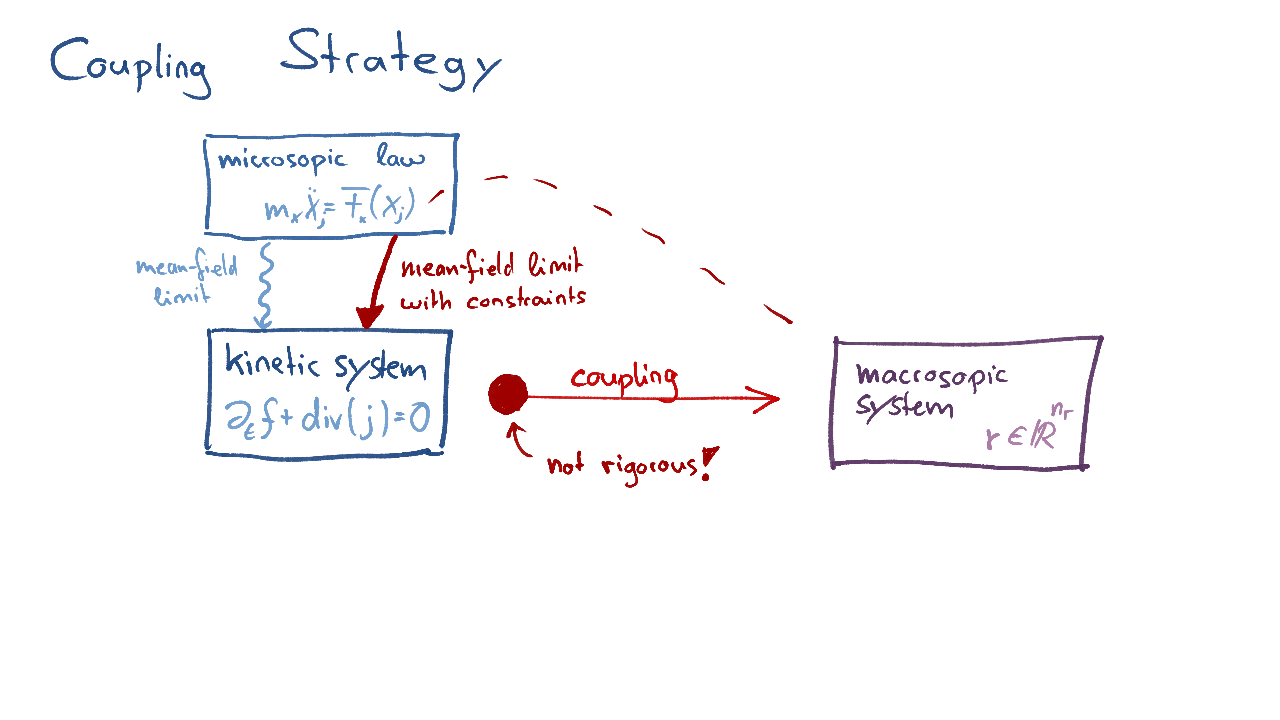 Coupling Strategy
microsopic law
mₓẍⱼ = Fₓ(xⱼ)
mean-field
limit
mean-field limit
with constraints
kinetic system
∂ₜf + div(j) = 0
coupling
not rigorous!
macrosopic
system
r ∈ ℝⁿʳ